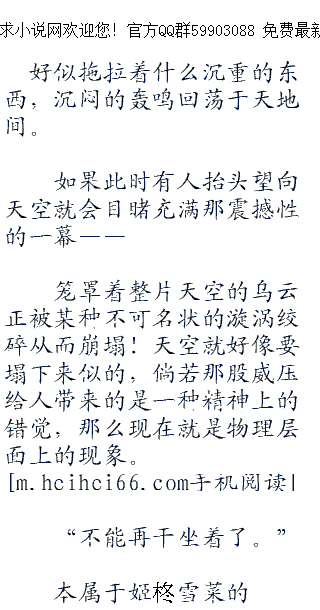 求小说网欢迎您！官方QQ群59903088 免费最新
好似拖拉着什么沉重的东
西，沉闷的轰鸣回荡于天地
间。
如果此时有人抬头望向
天空就会目睹充满那震撼性
的一幕——
笼罩着整片天空的乌云
正被某种不可名状的漩涡绞
碎从而崩塌！天空就好像要
塌下来似的，倘若那股威压
给人带来的是一种精神上的
错觉，那么现在就是物理层
面上的现象。
[m.hcihci66.com手机阅读|
“不能再干坐着了。”
本属于姬柊雪菜的